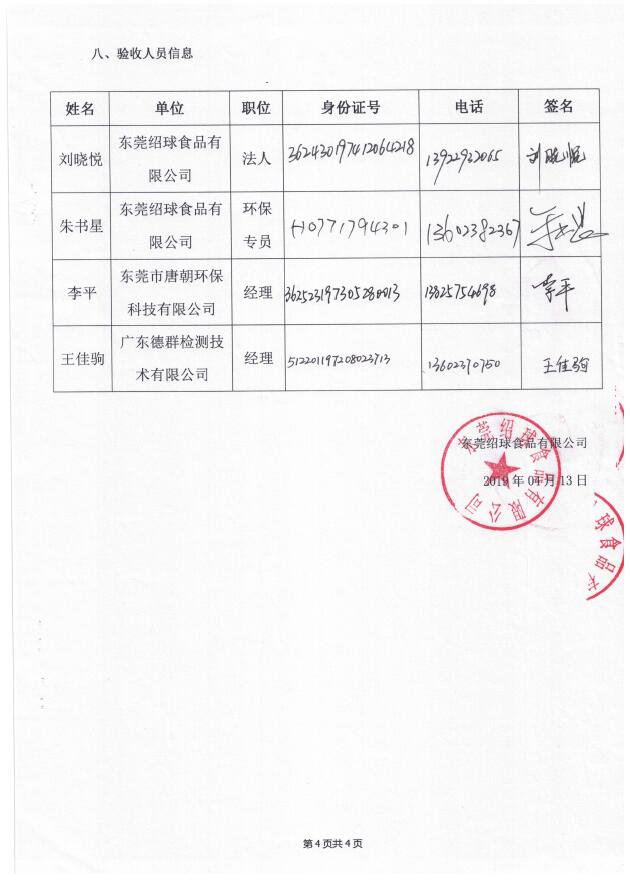 八、验收人员信息
姓名 单位 职位 身份证号 电话 签名
刘晓悦 东莞绍球食品有限公司 法人 362430197412064218 13922932065 刘晓悦
朱书星 东莞绍球食品有限公司 环保专员 13602382367
李平 东莞市唐朝环保科技有限公司 经理 13825754698 李平
王佳驹 广东德群检测技术有限公司 经理 512201197208023713 13602370750 王佳驹
东莞绍球食品有限公司
2019年04月13日
东莞绍球食品有限公司
球食品有
第4页共4页